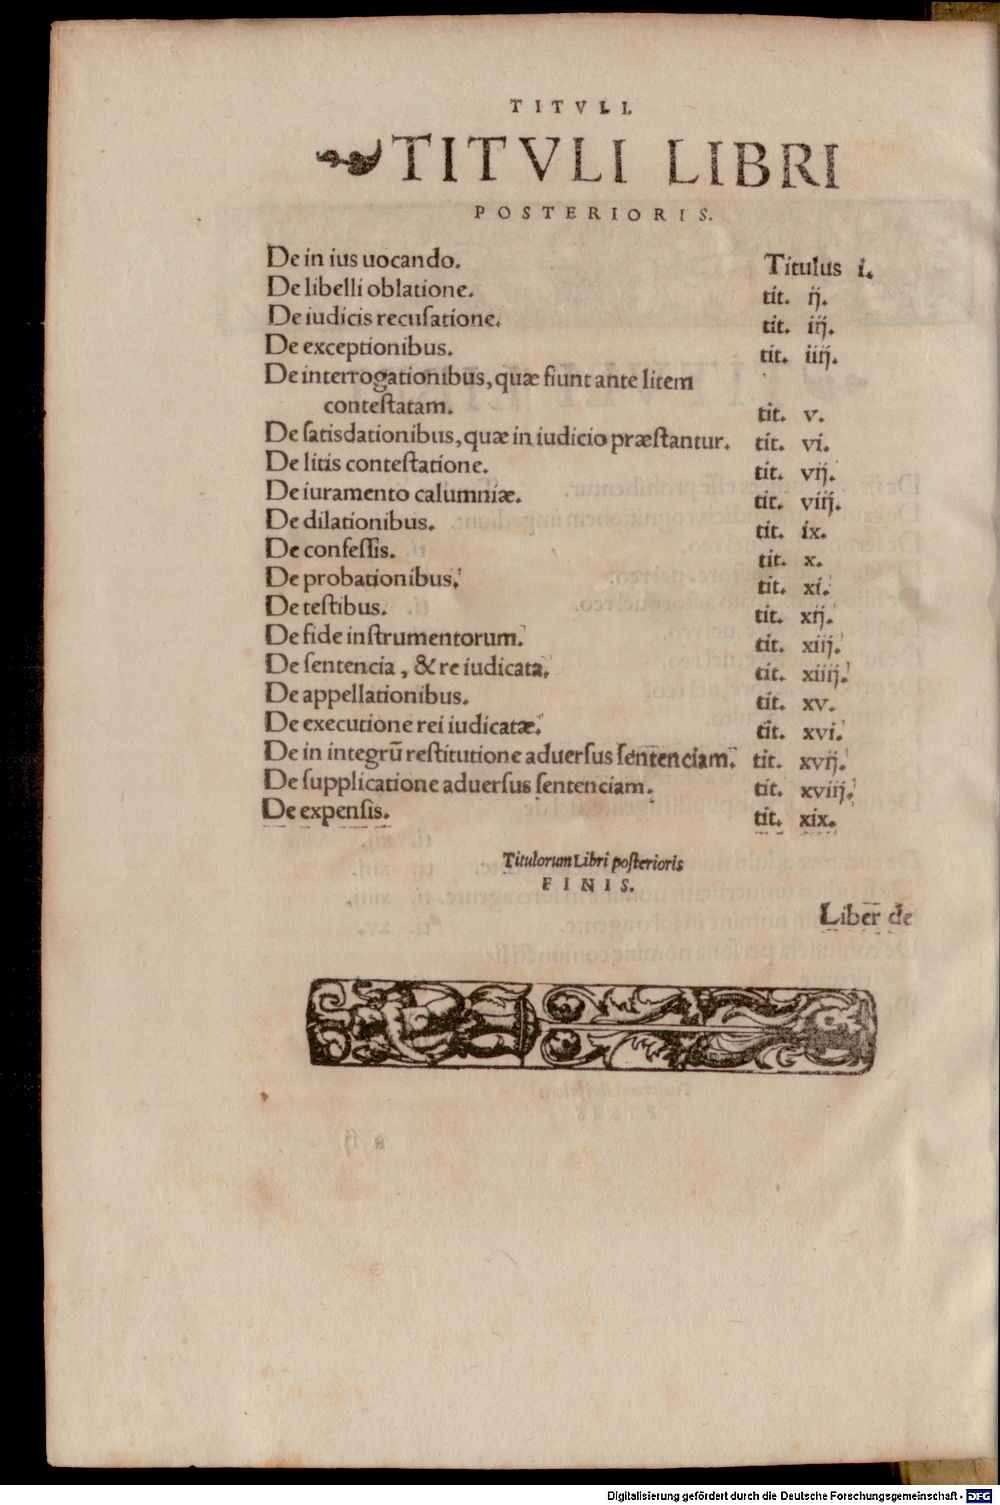 TITVLI.
TITVLI LIBRI
POSTERIORIS.
De in ius uocando. Titulus i.
De libelli oblatione. tit. ij.
De iudicis recuſatione. tit. iij.
De exceptionibus. tit. iiij.
De interrogationibus, quæ fiunt ante litem
conteſtatam. tit. v.
De ſatisdationibus, quæ in iudicio præſtantur. tit. vi.
De litis conteſtatione. tit. vij.
De iuramento calumniæ. tit. viij.
De dilationibus. tit. ix.
De confeſſis. tit. x.
De probationibus. tit. xi.
De teſtibus. tit. xij.
De fide inſtrumentorum. tit. xiij.
De ſentencia, & re iudicata. tit. xiiij.
De appellationibus. tit. xv.
De executione rei iudicatæ. tit. xvi.
De in integrũ reſtitutione aduerſus ſentenciam. tit. xvij.
De ſupplicatione aduerſus ſentenciam. tit. xviij.
De expenſis. tit. xix.
Titulorum Libri poſterioris
FINIS.
Liber de
Digitalisierung gefördert durch die Deutsche Forschungsgemeinschaft - DFG